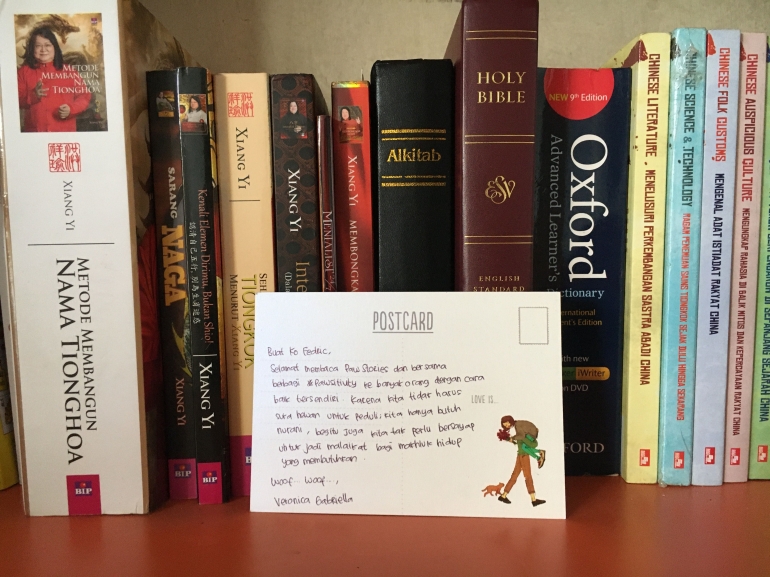 METODE
MEMBANGUN
NAMA
TIONGHOA
XIANG YI
METODE MEMBANGUN
NAMA TIONGHOA
BIP
SARANG
NAGA
XIANG YI
BIP
Kenali Elemen Dirimu, Bukan Shio!
XIANG YI
BIP
XIANG YI
TIONGKOK
MENURUT XIANG YI
XIANG YI
XIANG YI
MEMBONGKA
Alkitab
HOLY
BIBLE
ESV
ENGLISH
STANDARD
NEW 9th Edition
Oxford
Advanced Learner's
ctionary
International
ent's Edition
with new
iWriter
on DVD
FORD
CHINESE LITERATURE
MENELUSURI PERKEMBANGAN SASTRA ABADI CHINA
CHINESE SCIENCE & TECHNOLOGY
RAGAM PENEMUAN SAINS TIONGKOK SEJAK DULU HINGGA SEKARANG
CHINESE FOLK CUSTOMS
MENGENAL ADAT ISTIADAT RAKYAT CHINA
CHINESE AUSPICIOUS CULTURE
MENGUNGKAP RAHASIA DI BALIK MITOS DAN KEPERCAYAAN RAKYAT CHINA
POSTCARD
Buat Ko Fedric,
Selamat membaca Raw Stories dan bersama
berbagi #Rawsitivity ke banyak orang dengan cara
baik tersendiri. Karena kita tidak harus
LOVE IS...
sura hewan untuk peduli, kita hanya butuh
nurani, begitu juga kita tak perlu bersayap
untuk jadi malaikat bagi makhluk hidup
yang membutuhkan.
Woof... Woof...,
Veronica Gabriella